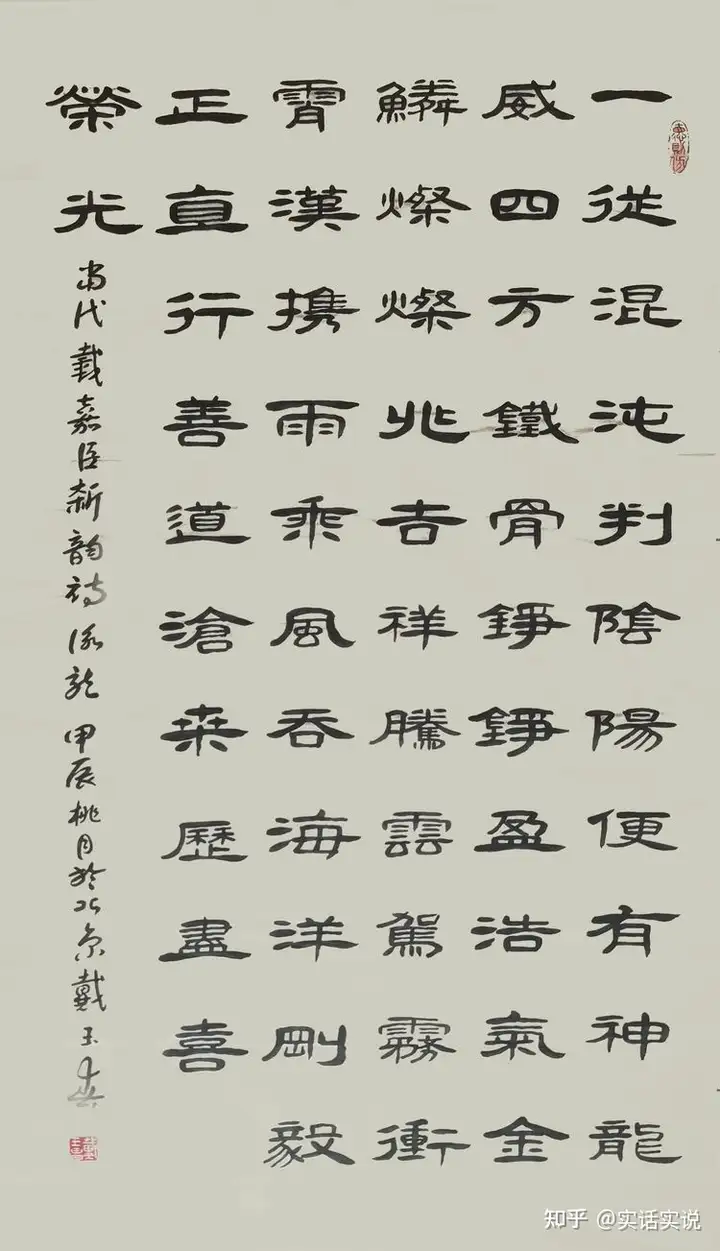 一從混沌判陰陽便有神龍
威四方鐵骨錚錚盈浩氣金
鱗燦燦兆吉祥騰雲駕霧衝
霄漢携雨乘風吞海洋剛毅
正直行善道滄桒歷盡喜
榮光
当代戴嘉臣新韵诗咏龙甲辰桃月於北京戴玉
知乎 @实话实说